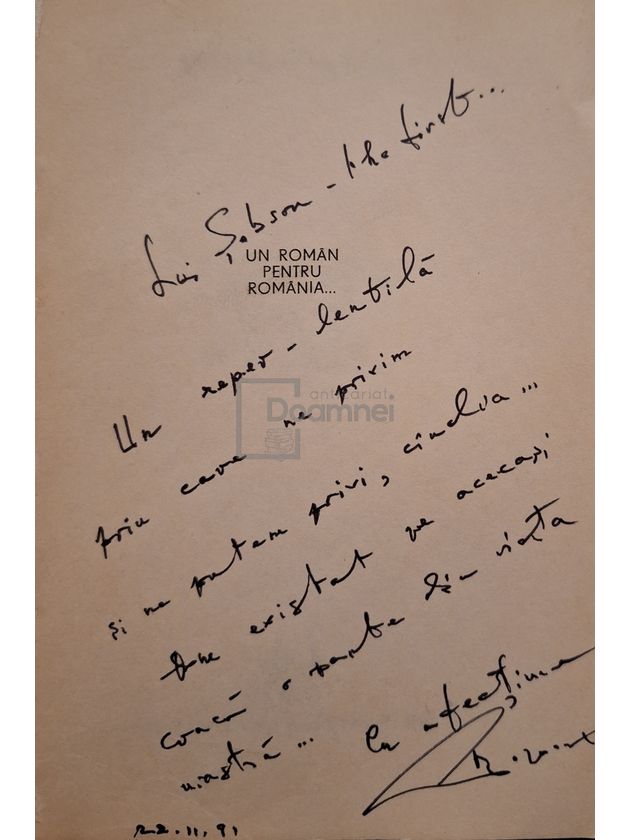 Lui Șebson - the first...
UN ROMÂN
PENTRU
ROMÂNIA...
Un reper - lentilă
antic ariat
Doamnei
prin care ne privim
și ne putem privi, cîndva...
Am existat pe aceeași
coacă o parte din viața
noastră... Cu afecțiune
22.11.91